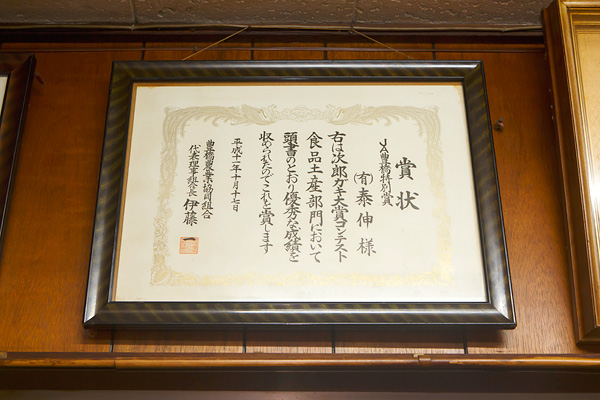 賞状
JA豊橋特別賞
(有)泰伸 様
右は次郎ガキ大賞コンテスト
食品土産部門において
頭書のとおり優秀な成績を
収められたのでこれを賞します
平成十一年十月十七日
豊橋農業協同組合
代表理事組合長 伊藤 一